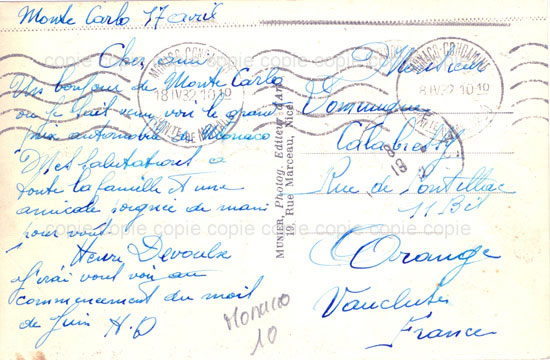 Monte Carlo 17 avril
Cher ami
Un bonjour de Monte Carlo
ou je suis venu voir le grand
prix automobile de Monaco
Mes salutations a
toute la famille et une
amicale poignée de main
pour vous
Henri Devouls
J'irai vous voir au
commencement du mois
de Juin H.D
MONACO-CONDAMINE
18 IV 32 10 10
MONACO-CONDAMINE
18 IV 32 10 10
MUNIER, Photog. Editeur d'Art
19, Rue Marceau, Nice
Monsieur
Dominique
Calabrese
Rue de Pontillac
11 Bis
Orange
Vaucluse
France
Monaco
10
copie copie copie copie copie copie
copie copie copie copie copie copie